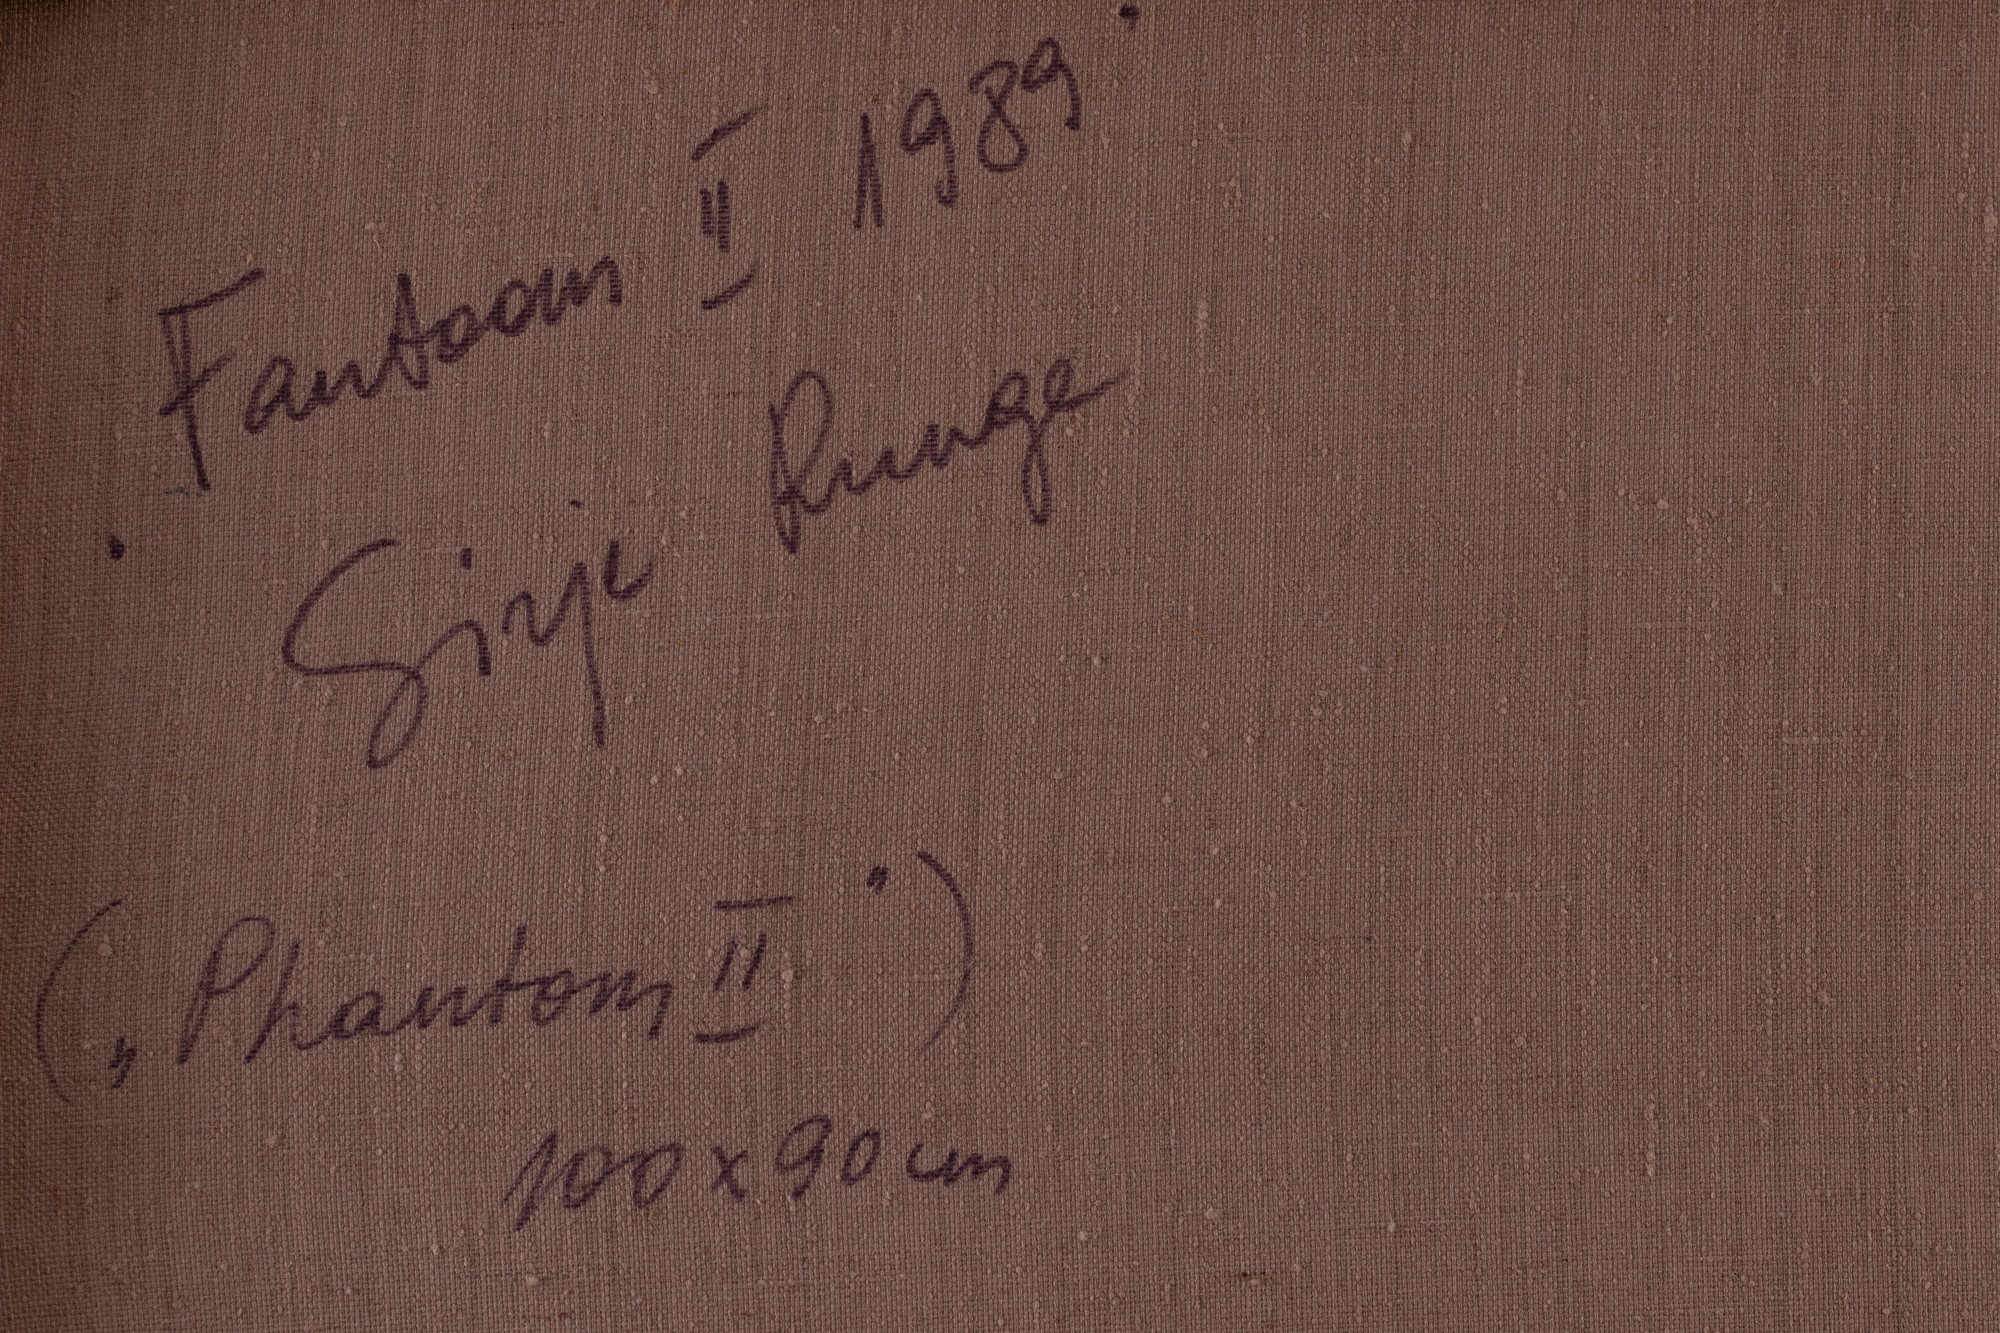 „Fantoom II 1989"
Sirje Runge
(„Phantom II")
100x90cm